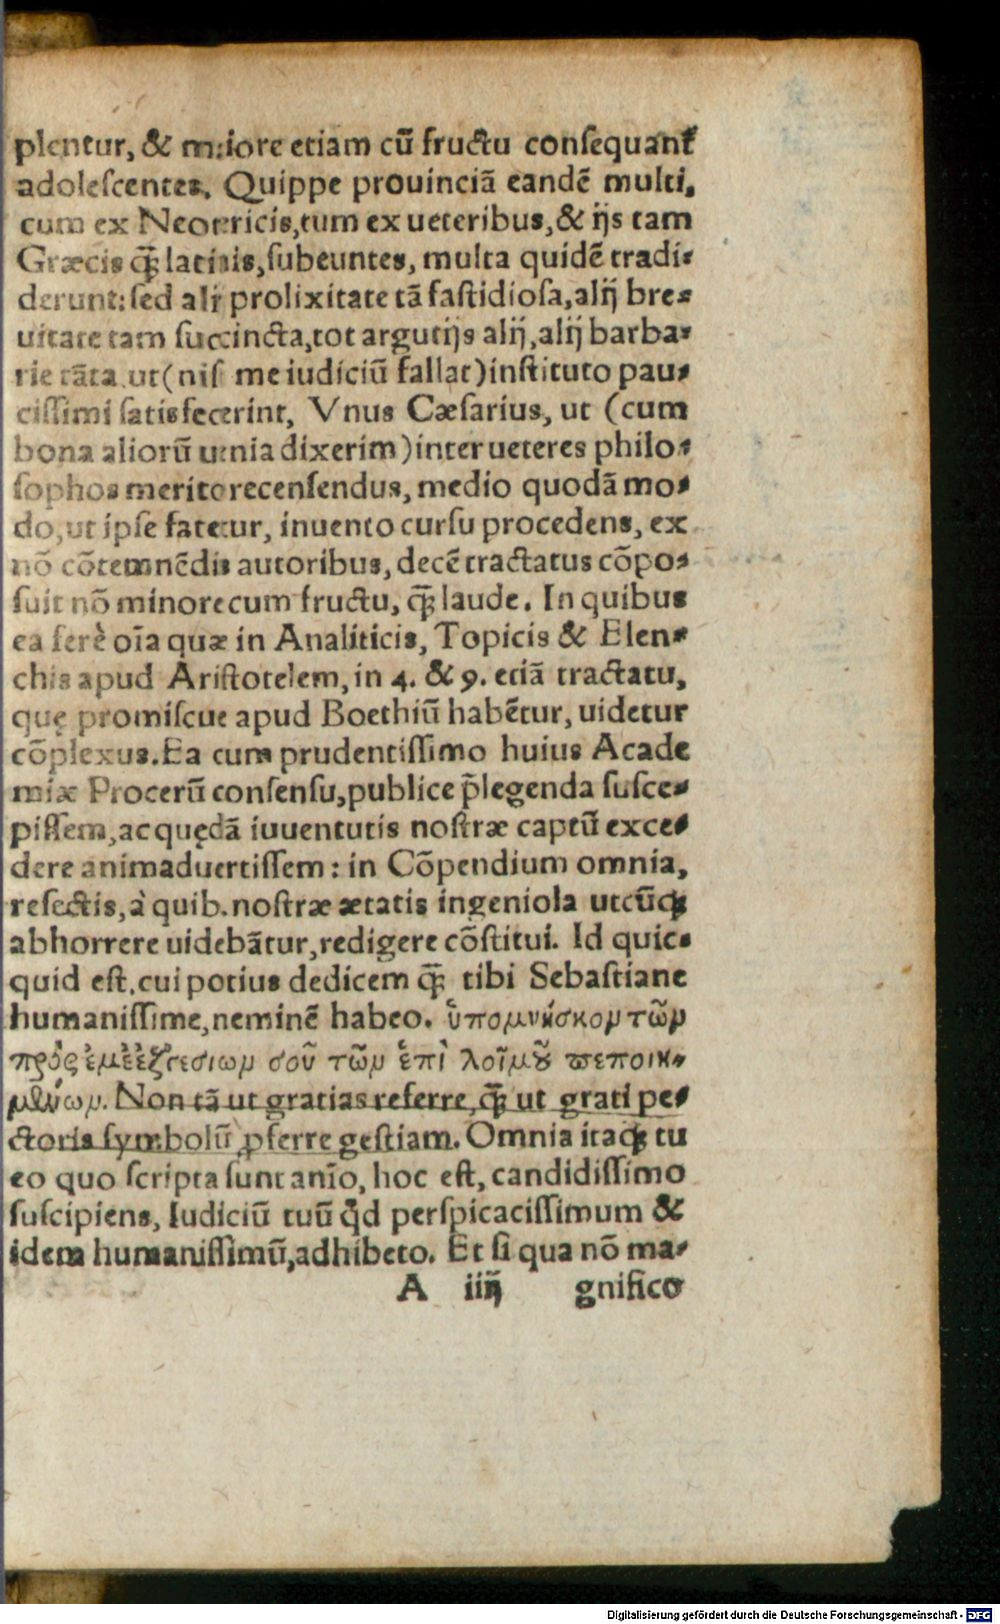 plentur, & maiore etiam cū fructu consequant᷑
adolescentes. Quippe prouinciā eandē multi,
cum ex Neotericis, tum ex ueteribus, & ijs tam
Græcis q̃ꝫ latinis, subeuntes, multa quidē tradi-
derunt: sed alij prolixitate tā fastidiosa, alij bre-
uitate tam succincta, tot argutijs alij, alij barba-
rie tāta, ut (nisi me iudiciū fallat) instituto pau-
cissimi satisfecerint, Vnus Cæsarius, ut (cum
bona aliorū uenia dixerim) inter ueteres philo-
sophos merito recensendus, medio quodā mo-
do, ut ipse fatetur, inuento cursu procedens, ex
nō cōtemnēdis autoribus, decē tractatus cōpo-
suit nō minore cum fructu, q̃ꝫ laude. In quibus
ea ferè oīa quæ in Analiticis, Topicis & Elen-
chis apud Aristotelem, in 4. & 9. etiā tractatu,
quę promiscue apud Boethiū habētur, uidetur
cōplexus. Ea cum prudentissimo huius Acade
miæ Procerū consensu, publice p̄legenda susce-
pissem, ac quędā iuuentutis nostræ captū exce-
dere animaduertissem: in Cōpendium omnia,
resectis, à quib. nostræ ætatis ingeniola utcūqꝫ
abhorrere uidebātur, redigere cōstitui. Id quic-
quid est, cui potius dedicem q̃ꝫ tibi Sebastiane
humanissime, neminē habeo. ὑπομνήσκομ τῶμ
πρὸς ἐμὲ ἐξ σου τῶμ ἐπὶ λοιμοῦ πεποιη-
μένωμ. Non tā ut gratias referre, q̃ꝫ ut grati pe-
ctoris symbolū ꝓferre gestiam. Omnia itaqꝫ tu
eo quo scripta sunt anīo, hoc est, candidissimo
suscipiens, Iudiciū tuū qd̄ perspicacissimum &
idem humanissimū, adhibeto. Et si qua nō ma-
A iiij gnifico
Digitalisierung gefördert durch die Deutsche Forschungsgemeinschaft - DFG